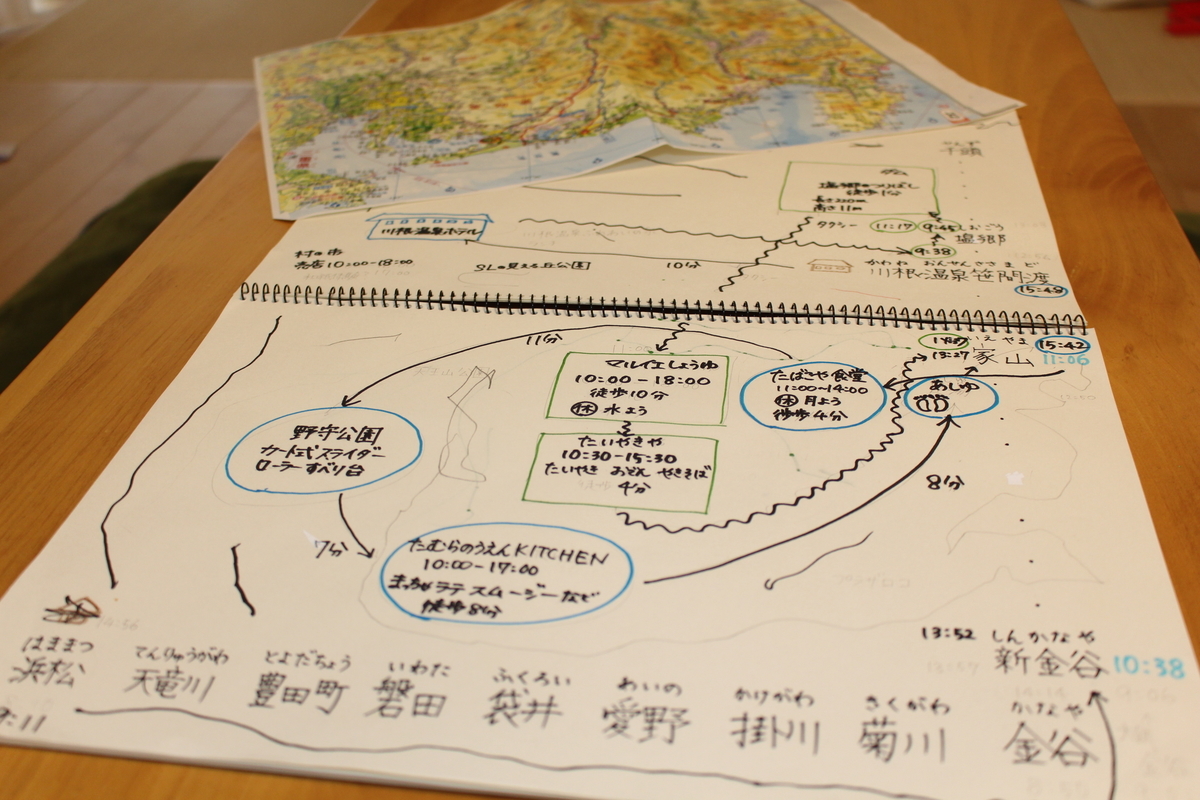 千頭
塩郷のつりばし
徒歩1分
長さ220m
高さ11m
川根温泉ホテル
タクシー
11:17
9:45
しおごう
塩郷
9:38
村の市
売店10:00-18:00
SLの見える丘公園
10分
かわね おんせんささま ど
川根温泉笹間渡
15:49
11分
いえ やま
家山
13:27
15:42
11:06
マルイエしょうゆ
10:00-18:00
徒歩10分
休 水よう
たばこや食堂
11:00~14:00
休 月よう
徒歩4分
あしゆ
野守公園
カート式スライダー
ローラーすべり台
たいやきや
10:30-15:30
たいやき おでん やきそば
4分
8分
7分
たむらのうえんKITCHEN
10:00-17:00
まっちゃラテ スムージーなど
徒歩8分
14:56
13:52
しんかなや
新金谷
10:38
はままつ
浜松
てんりゅうがわ
天竜川
とよだちょう
豊田町
いわた
磐田
ふくろい
袋井
あいの
愛野
かけがわ
掛川
きくがわ
菊川
かなや
金谷
:11